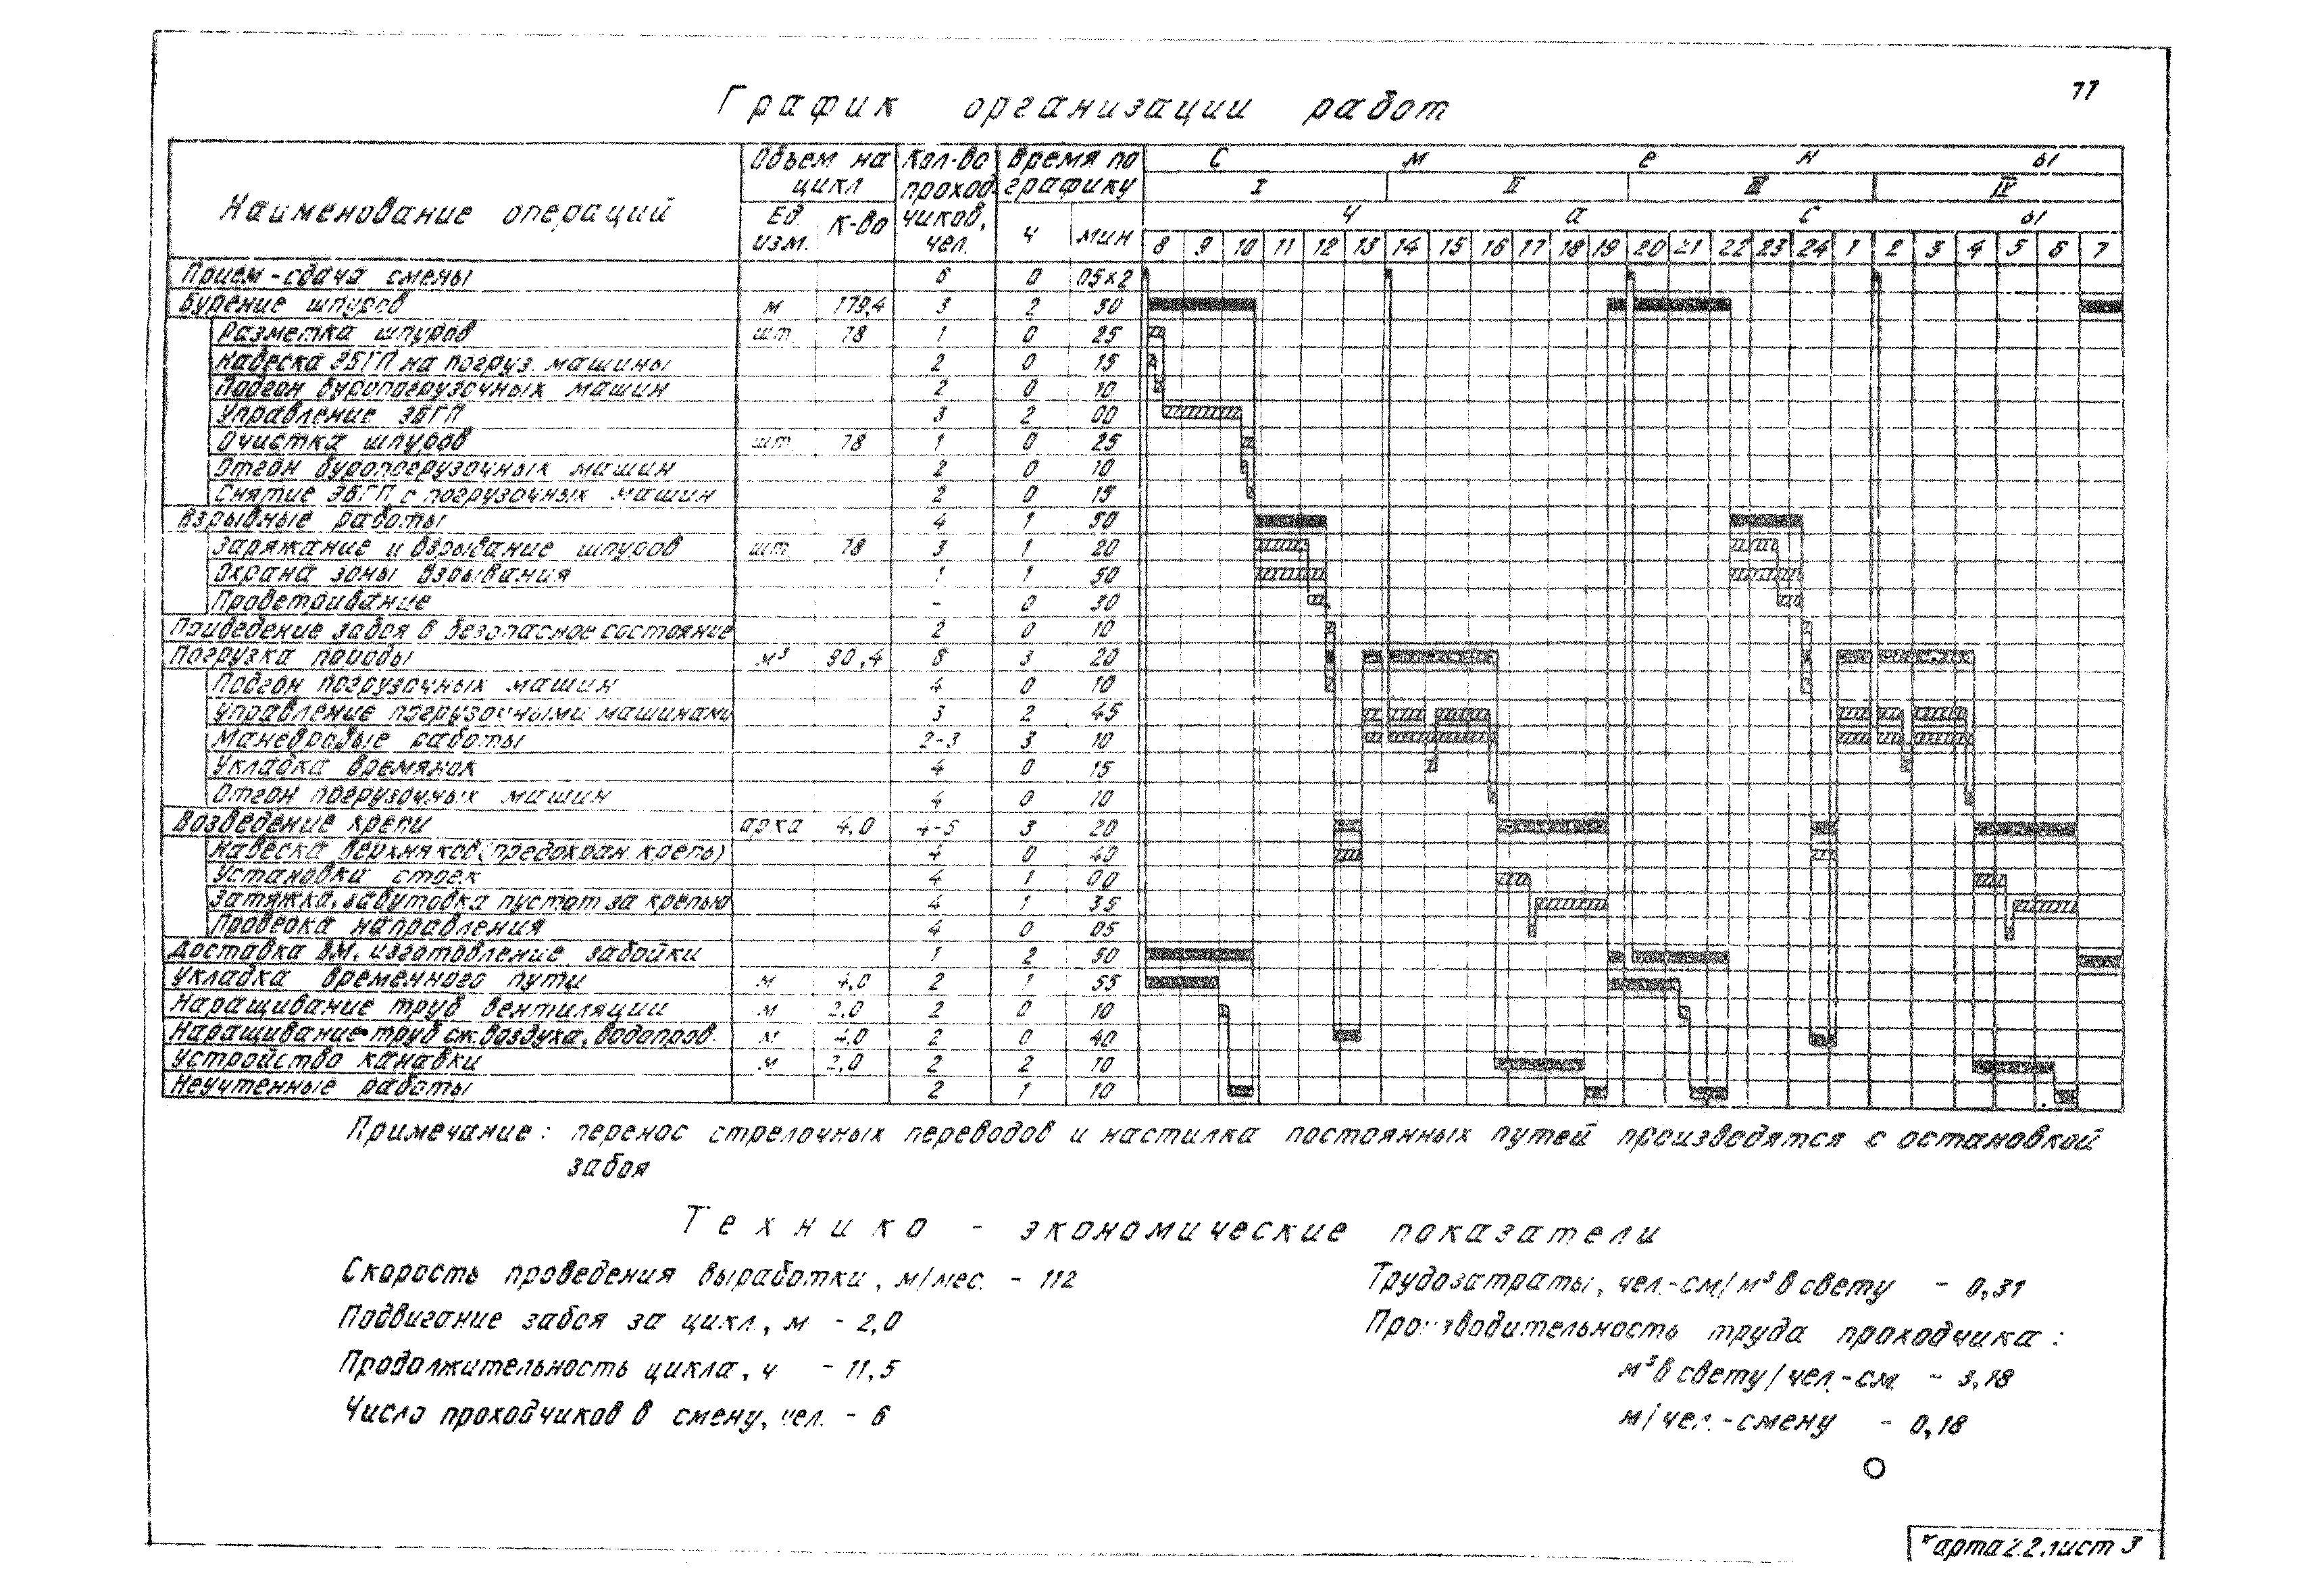 77
График организации работ
Наименование операций Объем на цикл Кол-во проходчиков, чел. Время по графику С м е н ы
I II III IV
Ед. изм. К-во ч мин Ч а с ы
8 9 10 11 12 13 14 15 16 17 18 19 20 21 22 23 24 1 2 3 4 5 6 7
Прием-сдача смены 6 0 05×2
Бурение шпуров м 179,4 3 2 50
Разметка шпуров шт 78 1 0 25
Навеска ЭБГП на погруз. машины 2 0 15
Подгон буропогрузочных машин 2 0 10
Управление ЭБГП 3 2 00
Очистка шпуров шт 78 1 0 25
Отгон буропогрузочных машин 2 0 10
Снятие ЭБГП с погрузочных машин 2 0 15
Взрывные работы 4 1 50
Заряжание и взрывание шпуров шт 78 3 1 20
Охрана зоны взрывания 1 1 50
Проветривание - 0 30
Приведение забоя в безопасное состояние 2 0 10
Погрузка породы м³ 90,4 3 20
Подгон погрузочных машин 4 0 10
Управление погрузочными машинами 3 2 45
Маневровые работы 2-3 3 10
Укладка времянок 4 0 15
Отгон погрузочных машин 4 0 10
Возведение крепи арка 4,0 4-5 3 20
Навеска верхняков (предохран. крепь) 4 0 40
Установка стоек 4 1 00
Затяжка, забутовка пустот за крепью 4 1 35
Проверка направления 4 0 05
Доставка ВМ, изготовление забойки 1 2 50
Укладка временного пути м 4,0 2 1 55
Наращивание труб вентиляции м 2,0 2 0 10
Наращивание труб сж. воздуха, водопров. м 4,0 2 0 40
Устройство канавки м 2,0 2 2 10
Неучтенные работы 2 1 10
Примечание: перенос стрелочных переводов и настилка постоянных путей производятся с остановкой
забоя
Технико - экономические показатели
Скорость проведения выработки, м/мес. - 112
Подвигание забоя за цикл, м - 2,0
Продолжительность цикла, ч - 11,5
Число проходчиков в смену, чел. - 6
Трудозатраты, чел.-см/м³ в свету - 0,31
Производительность труда проходчика:
м³ в свету/чел.-см. - 3,18
м/чел.-смену - 0,18
Карта 2.2 лист 3